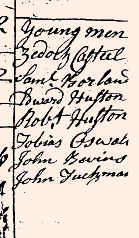 Young men
Zedock Casteel
Saml Borland
Edward Huston
Robt Huston
Tobias Oswalt
John Bevins
John Tuckman